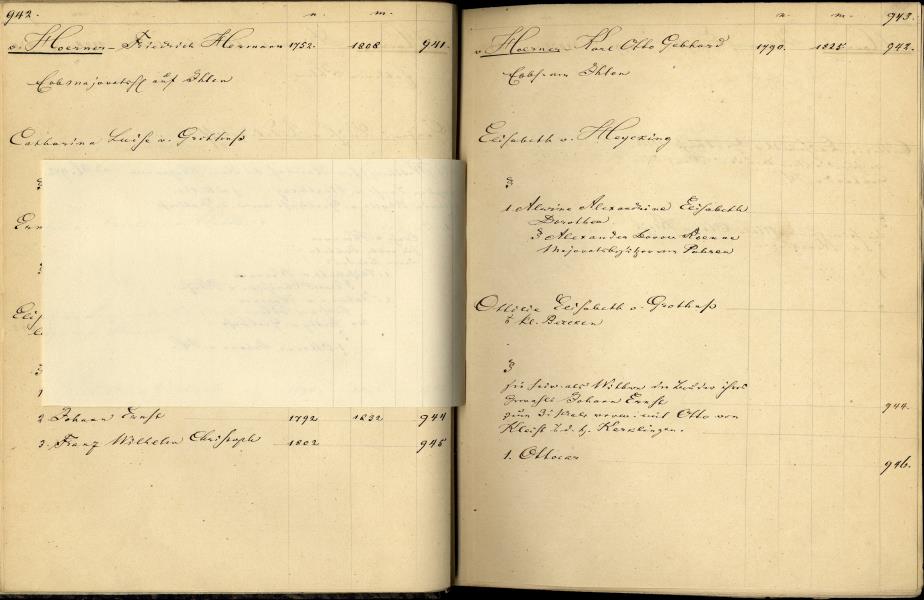 942.
n. m.
v. Hoerner Friedrich Hermann 1752. 1808 941.
Erbmajoratsh auf Ihlen
Catharina Luise v. Grotthuß
Ern
Elis
1
2. Johann Ernst 1792 1832 944
3. Franz Wilhelm Christoph 1802 945
n. m. 943.
v. Hoerner Karl Otto Gebhard 1790. 1825 942.
Erbh. von Ihlen
Elisabeth v. Heycking
1 Alwine Alexandrine Elisabeth
Dorothea
Alexander Baron Roenne
Majoratsbesitzer von Puhren
Ottilie Elisabeth v. Grotthuß
kl. Berken
sie hier als Wittwe den Bruder ihres
Gemahls Johann Ernst 944.
zum 3. Male verm. mit Otto von
Kleist a. d. H. Kerklingen.
1. Ottocar 946.